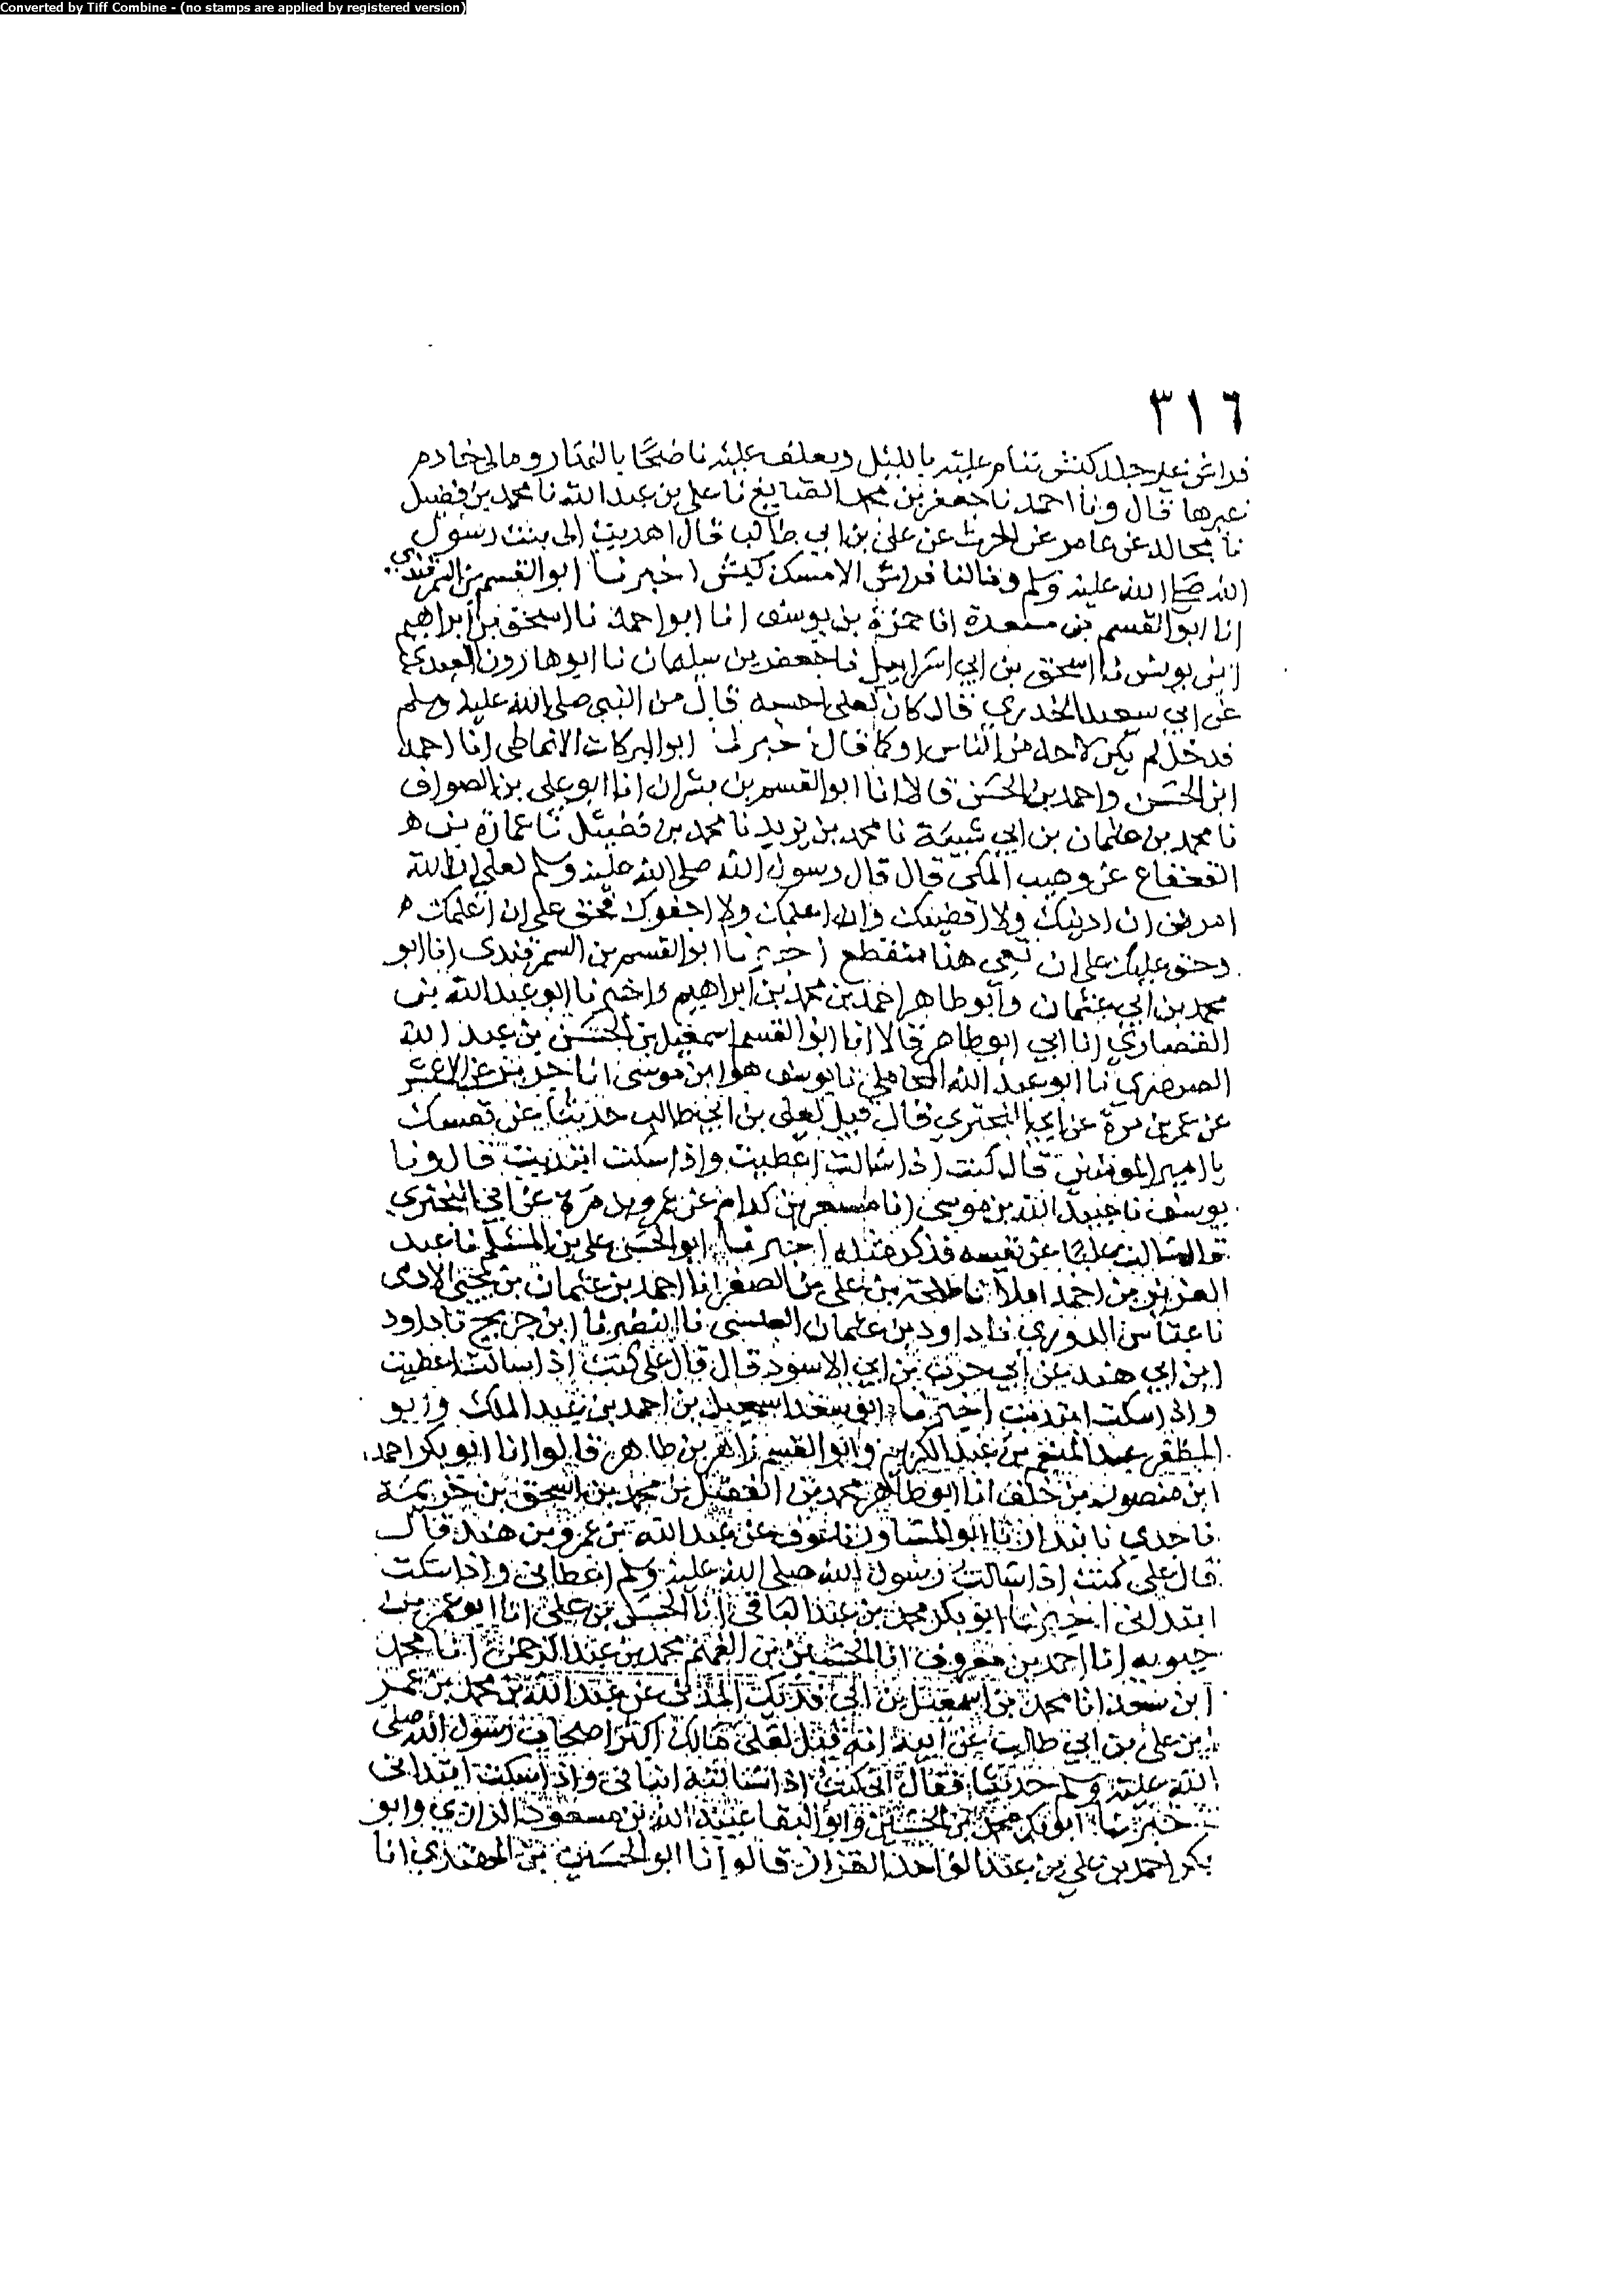 Converted by Tiff Combine - (no stamps are applied by registered version)
٣١٦
فراش غير جلد كبش ننام عليه بالليل ونعلف عليه ناضحا بالنهار ومالي خادم
غيرها قال ونا احمد نا جعفر بن محمد الصايغ نا علي بن عبد الله نا محمد بن فضيل
نا مجالد عن عامر عن الحرث عن علي بن ابي طالب قال اهديت الى بنت رسول
الله صلى الله عليه وسلم ومالنا فراش الا مسك كبش اخبرنا ابو القسم بن السمرقندي
انا ابو القسم بن مسعدة انا حمزة بن يوسف انا ابو احمد نا اسحق بن ابراهيم
ابن يونس نا اسحق بن ابي اسراييل نا جعفر بن سليمان نا ابو هارون العبدي
عن ابي سعيد الخدري قال كان لعلي احسبه قال من النبي صلى الله عليه وسلم
مدخل لم يكن لاحد من الناس او كما قال اخبرنا ابو البركات الانماطي انا احمد
ابن الحسن واحمد بن الحسن قالا انا ابو القسم بن بشران انا ابو علي بن الصواف
نا محمد بن عثمان بن ابي شيبة نا محمد بن يزيد نا محمد بن فضيل نا عمارة بن
القعقاع عن وهيب المكي قال قال رسول الله صلى الله عليه وسلم لعلي ان الله
امرني ان ادنيك ولا اقصيك وان اعلمك ولا اجفوك فحق علي ان اعلمك
وحق عليك على ان تعي هذا منقطع اخبرنا ابو القسم بن السمرقندي انا ابو
محمد بن ابي عثمان وابو طاهر احمد بن محمد بن ابراهيم واخبرنا ابو عبد الله بن
القصاري انا ابي ابو طاهر قالا انا ابو القسم اسمعيل بن الحسن بن عبد الله
الصرصري نا ابو عبد الله المحاملي نا يوسف هو ابن موسى انا جرير عن الاعمش
عن عمر بن مرة عن ابي البختري قال قيل لعلي بن ابي طالب حدثنا عن نفسك
يا امير المومنين قال كنت اذا سالت اعطيت واذا سكت ابتديت قال ونا
يوسف نا عبيد الله بن موسى انا مسعر بن كدام عن عمرو بن مرة عن ابي البختري
قال سالت عليا عن نفسه فذكر مثله اخبرنا ابو الحسن علي بن المسلم نا عبد
العزيز بن احمد املا نا طلحة بن علي بن الصقر انا احمد بن عثمان بن يحيى الادمي
نا عباس الدوري نا داود بن عثمان نا النضر نا ابن جريج نا داود
ابن ابي هند عن ابي حرب بن ابي الاسود قال قال علي كنت اذا سالت اعطيت
واذا سكت ابتديت اخبرنا ابو سعد اسمعيل بن احمد بن عبد الملك وابو
المظفر عبد المنعم بن عبد الكريم وابو القسم زاهر بن طاهر قالوا انا ابو بكر احمد
ابن منصور بن خلف انا ابو طاهر محمد بن الفضل بن محمد بن اسحق بن خزيمة
نا جدي نا بندار نا ابو المساور نا عوف عن عبد الله بن عمرو بن هند قال
قال علي كنت اذا سالت رسول الله صلى الله عليه وسلم اعطاني واذا سكت
ابتداني اخبرنا ابو بكر محمد بن عبد الباقي انا الحسن بن علي انا ابو عمر بن
حيويه انا احمد بن معروف انا الحسين بن الفهم محمد بن عبد الرحمن انا محمد
ابن سعد انا محمد بن اسمعيل بن ابي فديك المدني عن عبد الله بن محمد بن عمر
ابن علي بن ابي طالب عن ابيه انه قيل لعلي مالك اكثر اصحاب رسول الله صلى
الله عليه وسلم حديثا فقال اني كنت اذا سالته انباني واذا سكت ابتداني
اخبرنا ابو بكر محمد بن الحسين وابو البقا عبيد الله بن مسعود الرازي وابو
بكر احمد بن علي بن عبد الواحد القزاز قالوا انا ابو الحسين بن المهتدي انا